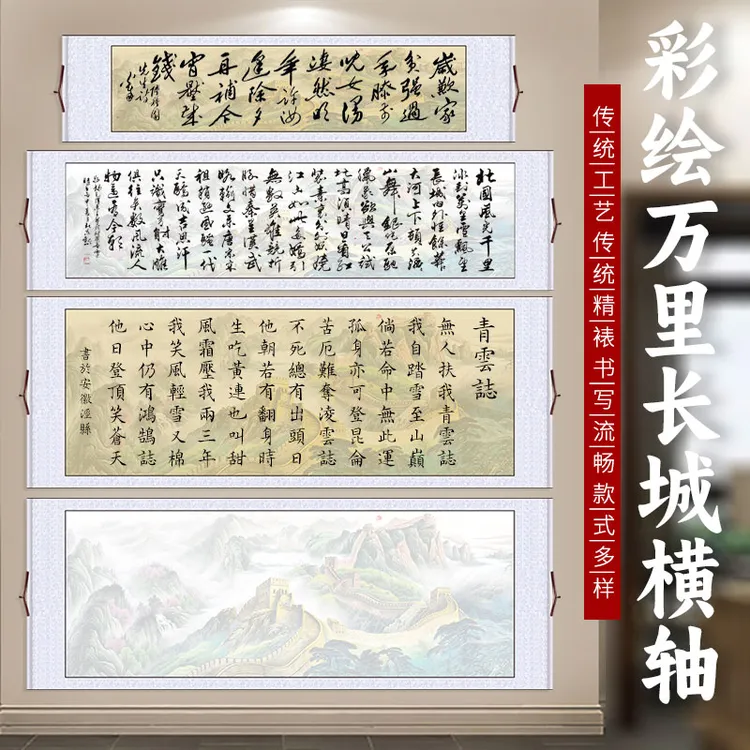 彩绘万里长城横轴
传统工艺 传统精裱 书写流畅 款式多样
歲歉家
強過
年膝前
兒女
淒然明
年許汝
逢除夕
再補今
宵壓歲
錢
北國風光千里
冰封萬里雪飄望
長城內外惟餘莽莽
大河上下頓失滔滔
山舞銀蛇原馳
蠟象欲與天公試
比高須晴日看紅
裝素裹分外妖嬈
江山如此多嬌引
無數英雄競折
腰惜秦皇漢武
略輸文采唐宗宋
祖稍遜風騷一代
天驕成吉思汗
只識彎弓射大雕
俱往矣數風流人
物還看今朝
青雲誌
無人扶我青雲誌
我自踏雪至山巔
倘若命中無此運
孤身亦可登昆侖
苦厄難奪淩雲誌
不死總有出頭日
他朝若有翻身時
生吃黃連也叫甜
風霜壓我兩三年
我笑風輕雪又棉
心中仍有鴻鵠誌
他日登頂笑蒼天
書於安徽涇縣